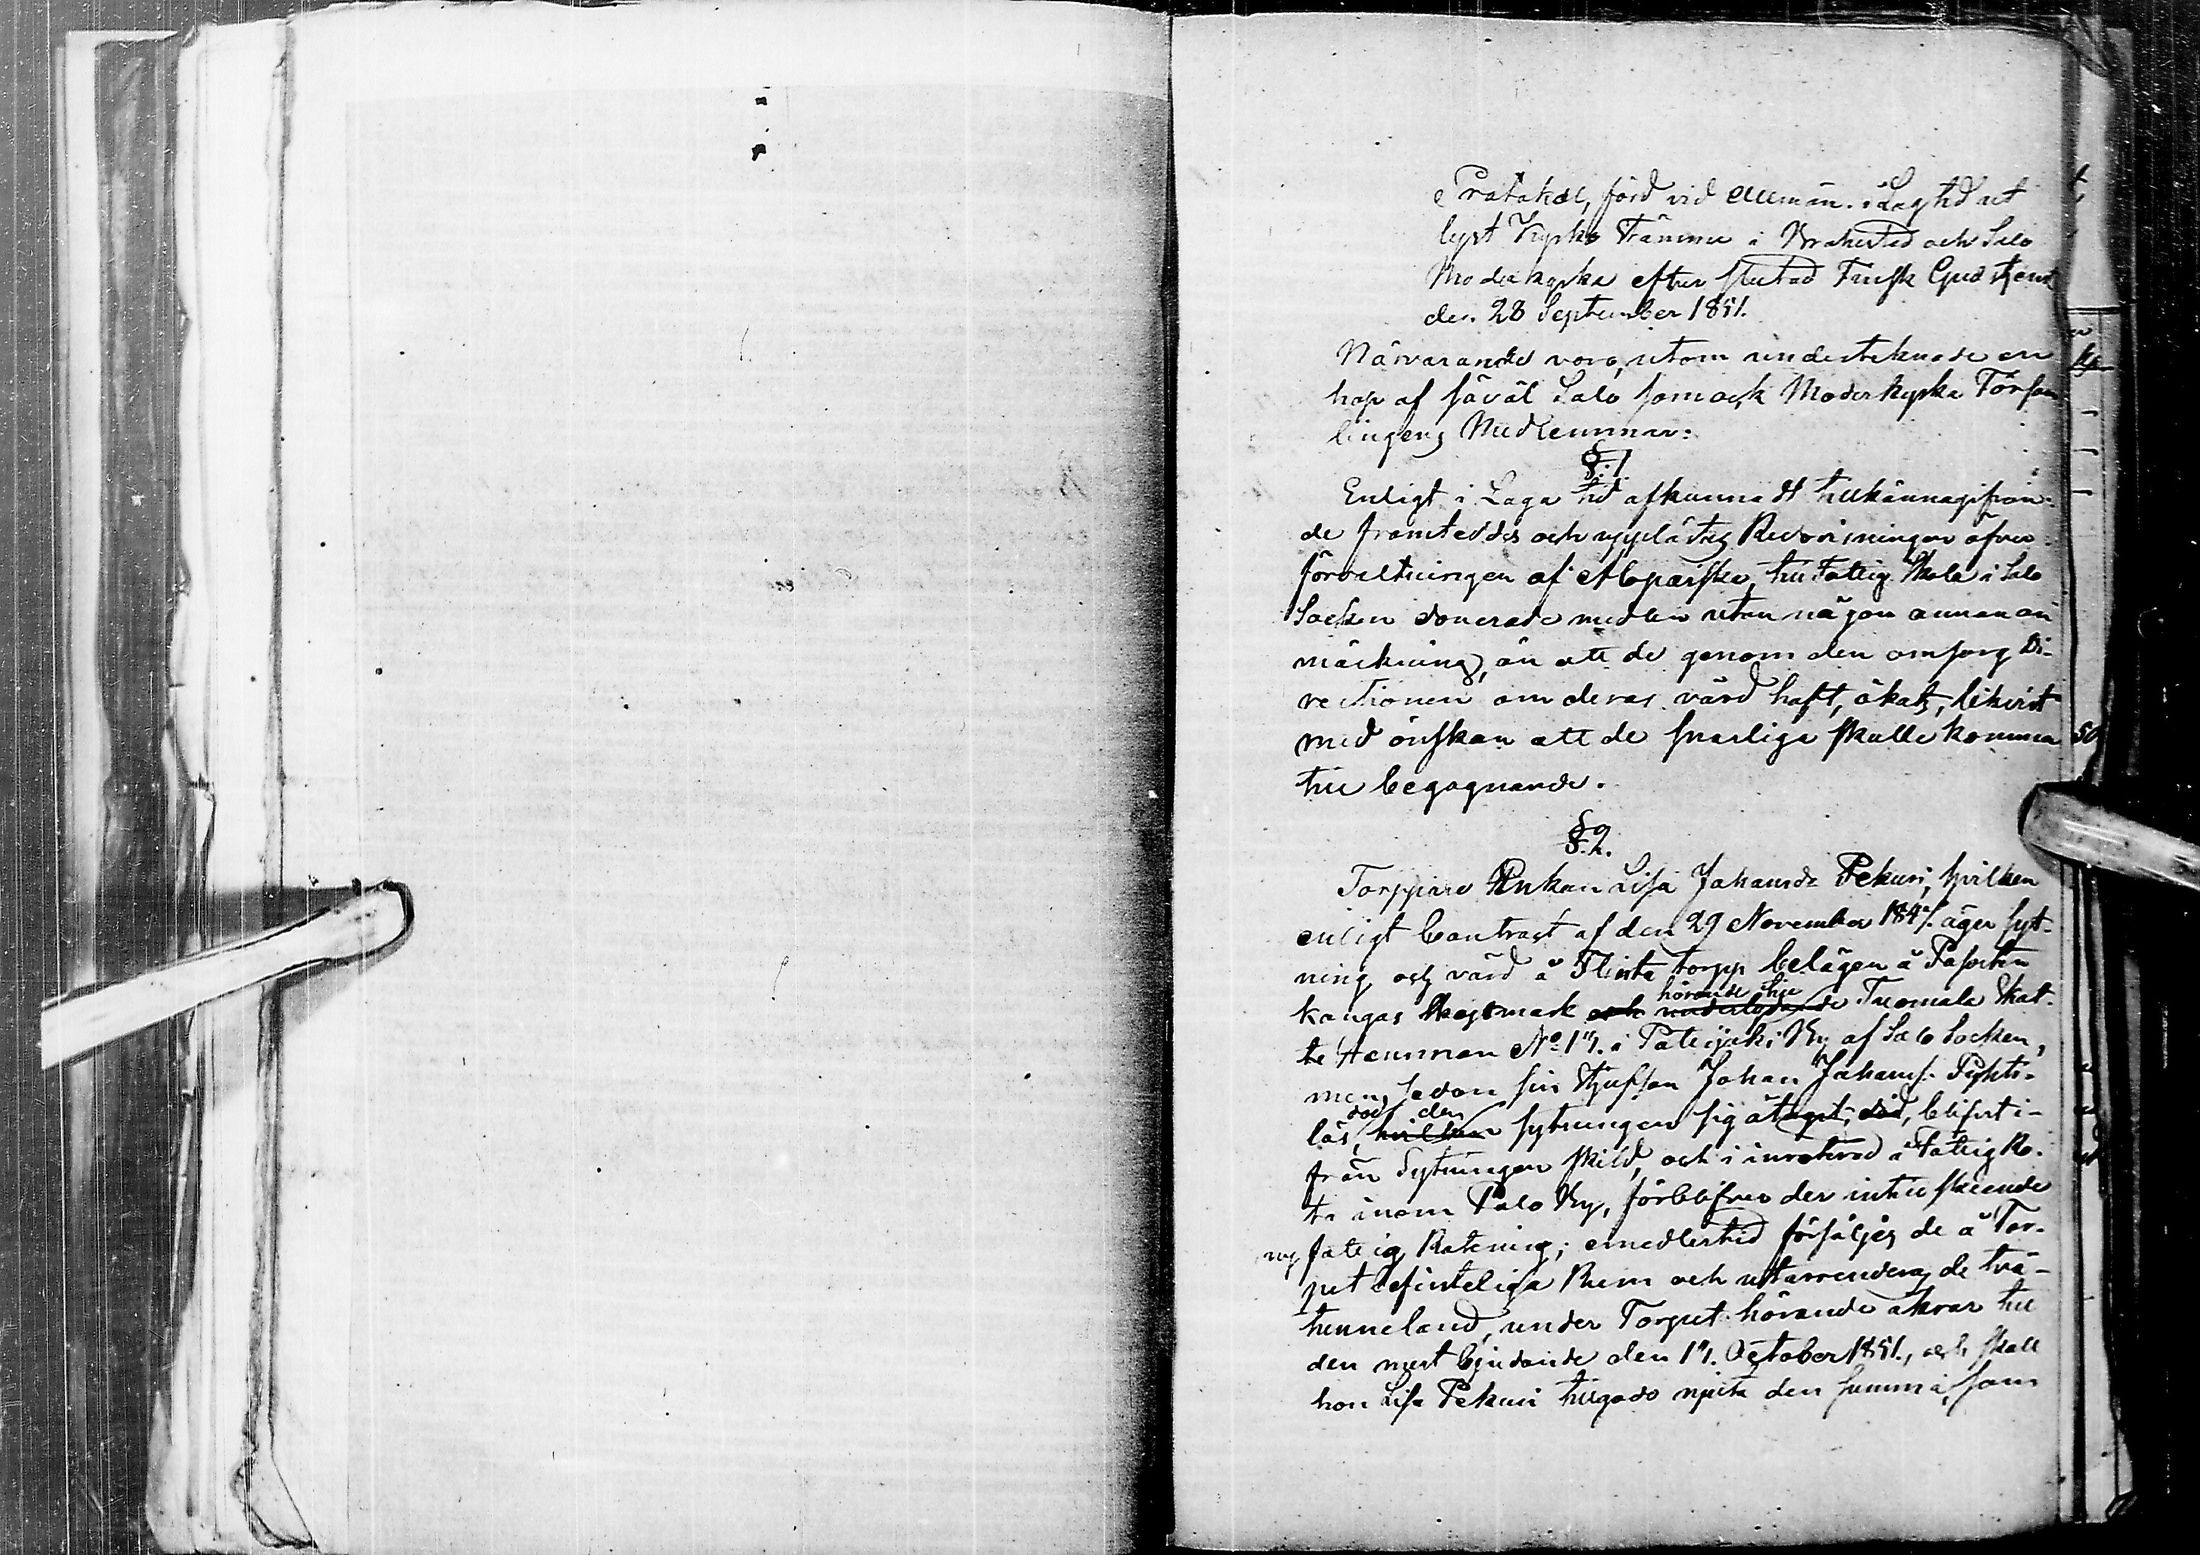 Protokoll, förd vid allmän. i Lag tid ut
lyst Kyrko Stämma i Brahestad och Salo
Moderkyrka efter slutad Finsk Gudstjenst
den 28 September 1851.
Närvarande voro, utom undertecknade en
hop af såväl Salo som ock Moderkyrko Försam
lingens Medlemmar:
§. 1.
Enligt i Laga tid afkunnadt tillkännagifvan-
de framteddes och upplästes Redovisningen öfver
förvaltningen af till Fattig Skola i Salo
Socken donerade medlen utan någon annan an
märkning, än att de genom den omsorg Di-
rectionen om deras vård haft, ökats, likvist
med önskan att de snarliga skulle komma
till begagnande.
§. 2.
Torppare Enkan Lisa Johansdr Pekuri, hvilken
enligt Contract af den 29 November 184 äger syt-
ning och vård å Flinta torpp belägen å
kangas Skogsmark och underlydande hörande till Tuomala Skat-
te Hemman No 17. i Patijoki By af Salo Socken,
men, sedan sin Styfson Johan Johans. Pyhti-
läs, hvilken som den sytningen sig åtagit, död, blifvit i-
från Sytningen skild, och i inroterad i Fattig Ro-
te inom Palo By, förblifver der intill skeende
ny fattig Rotening; emedlertid försäljes de å Tor-
pet befinteliga Rum och utarrenderas de två-
tunneland, under Torpet hörande åkrar till
den mest bjudande den 17. October 1851., och skall
hon Lisa Pekuri tillgodo njuta den summa, som